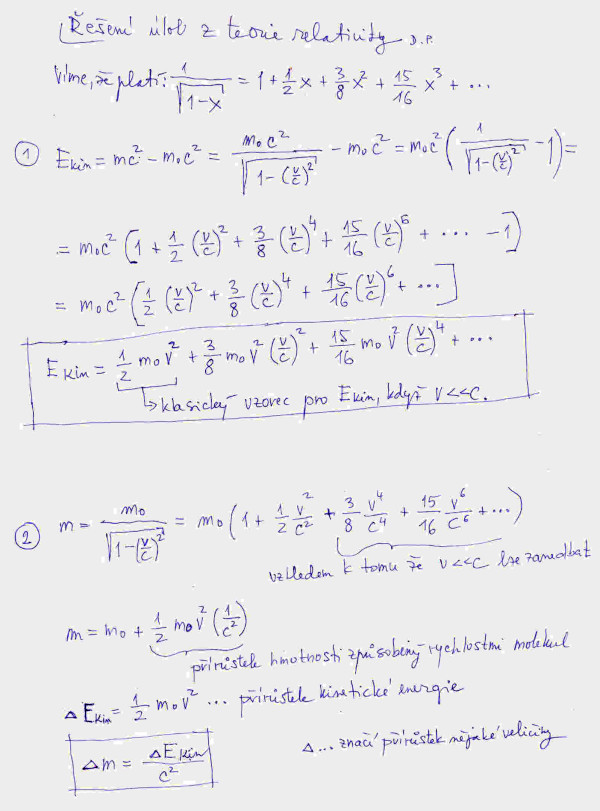 Řešení úloh z teorie relativity D.P.
Víme, že platí: 1/√(1-x) = 1 + 1/2 x + 3/8 x² + 15/16 x³ + ...
① E kin = mc² - m₀c² = m₀c²/√(1-(v/c)²) - m₀c² = m₀c² (1/√(1-(v/c)²) - 1) =
= m₀c² [1 + 1/2 (v/c)² + 3/8 (v/c)⁴ + 15/16 (v/c)⁶ + ... - 1]
= m₀c² [1/2 (v/c)² + 3/8 (v/c)⁴ + 15/16 (v/c)⁶ + ...]
E kin = 1/2 m₀v² + 3/8 m₀v² (v/c)² + 15/16 m₀v² (v/c)⁴ + ...
↳ klasický vzorec pro E kin, když v<<c.
② m = m₀/√(1-(v/c)²) = m₀ (1 + 1/2 v²/c² + 3/8 v⁴/c⁴ + 15/16 v⁶/c⁶ + ...)
vzhledem k tomu že v<<c lze zanedbat
m = m₀ + 1/2 m₀v² (1/c²)
přírůstek hmotnosti způsobený rychlostmi molekul
Δ E kin = 1/2 m₀v² ... přírůstek kinetické energie
Δm = ΔE kin/c²
Δ ... značí přírůstek nějaké veličiny